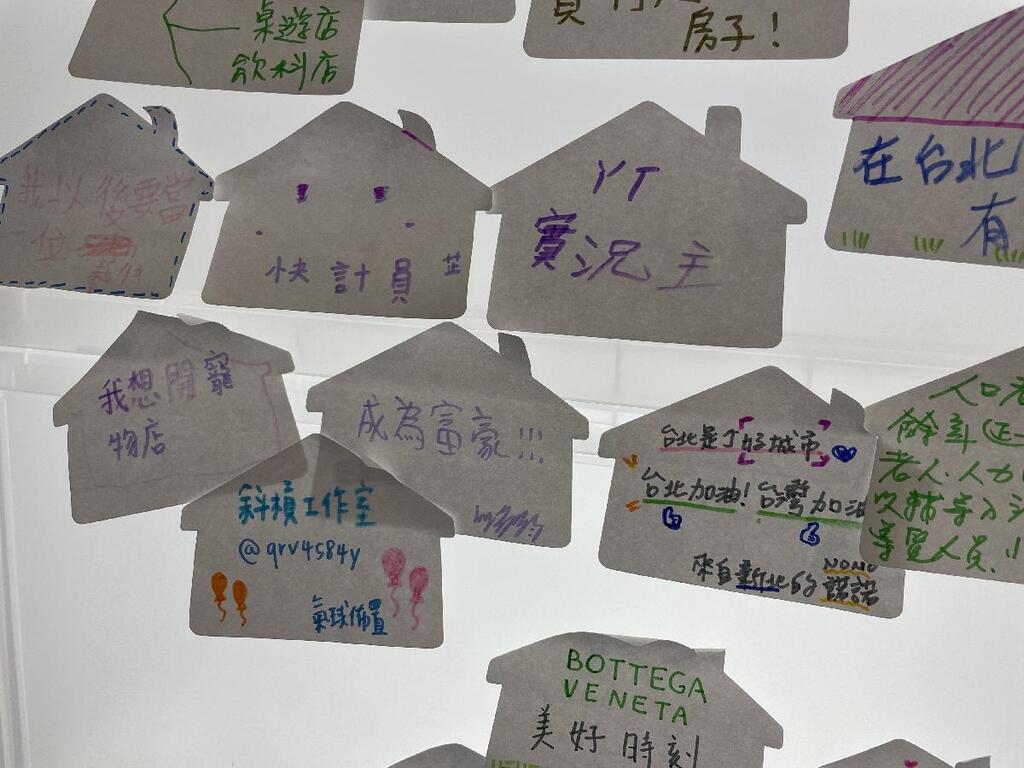 桌遊店
飲料店
房子！
我以後要當
一位
快計員
芷
YT
實況主
在台北
有
我想開寵
物店
成為富豪!!!
斜槓工作室
@qrv4584y
氣球佈置
台北是了好城市
台北加油！台灣加油
來自新北的諾諾
NONO
人口老
餘辜
老人.人力
導覽人員.
BOTTEGA
VENETA
美好時刻